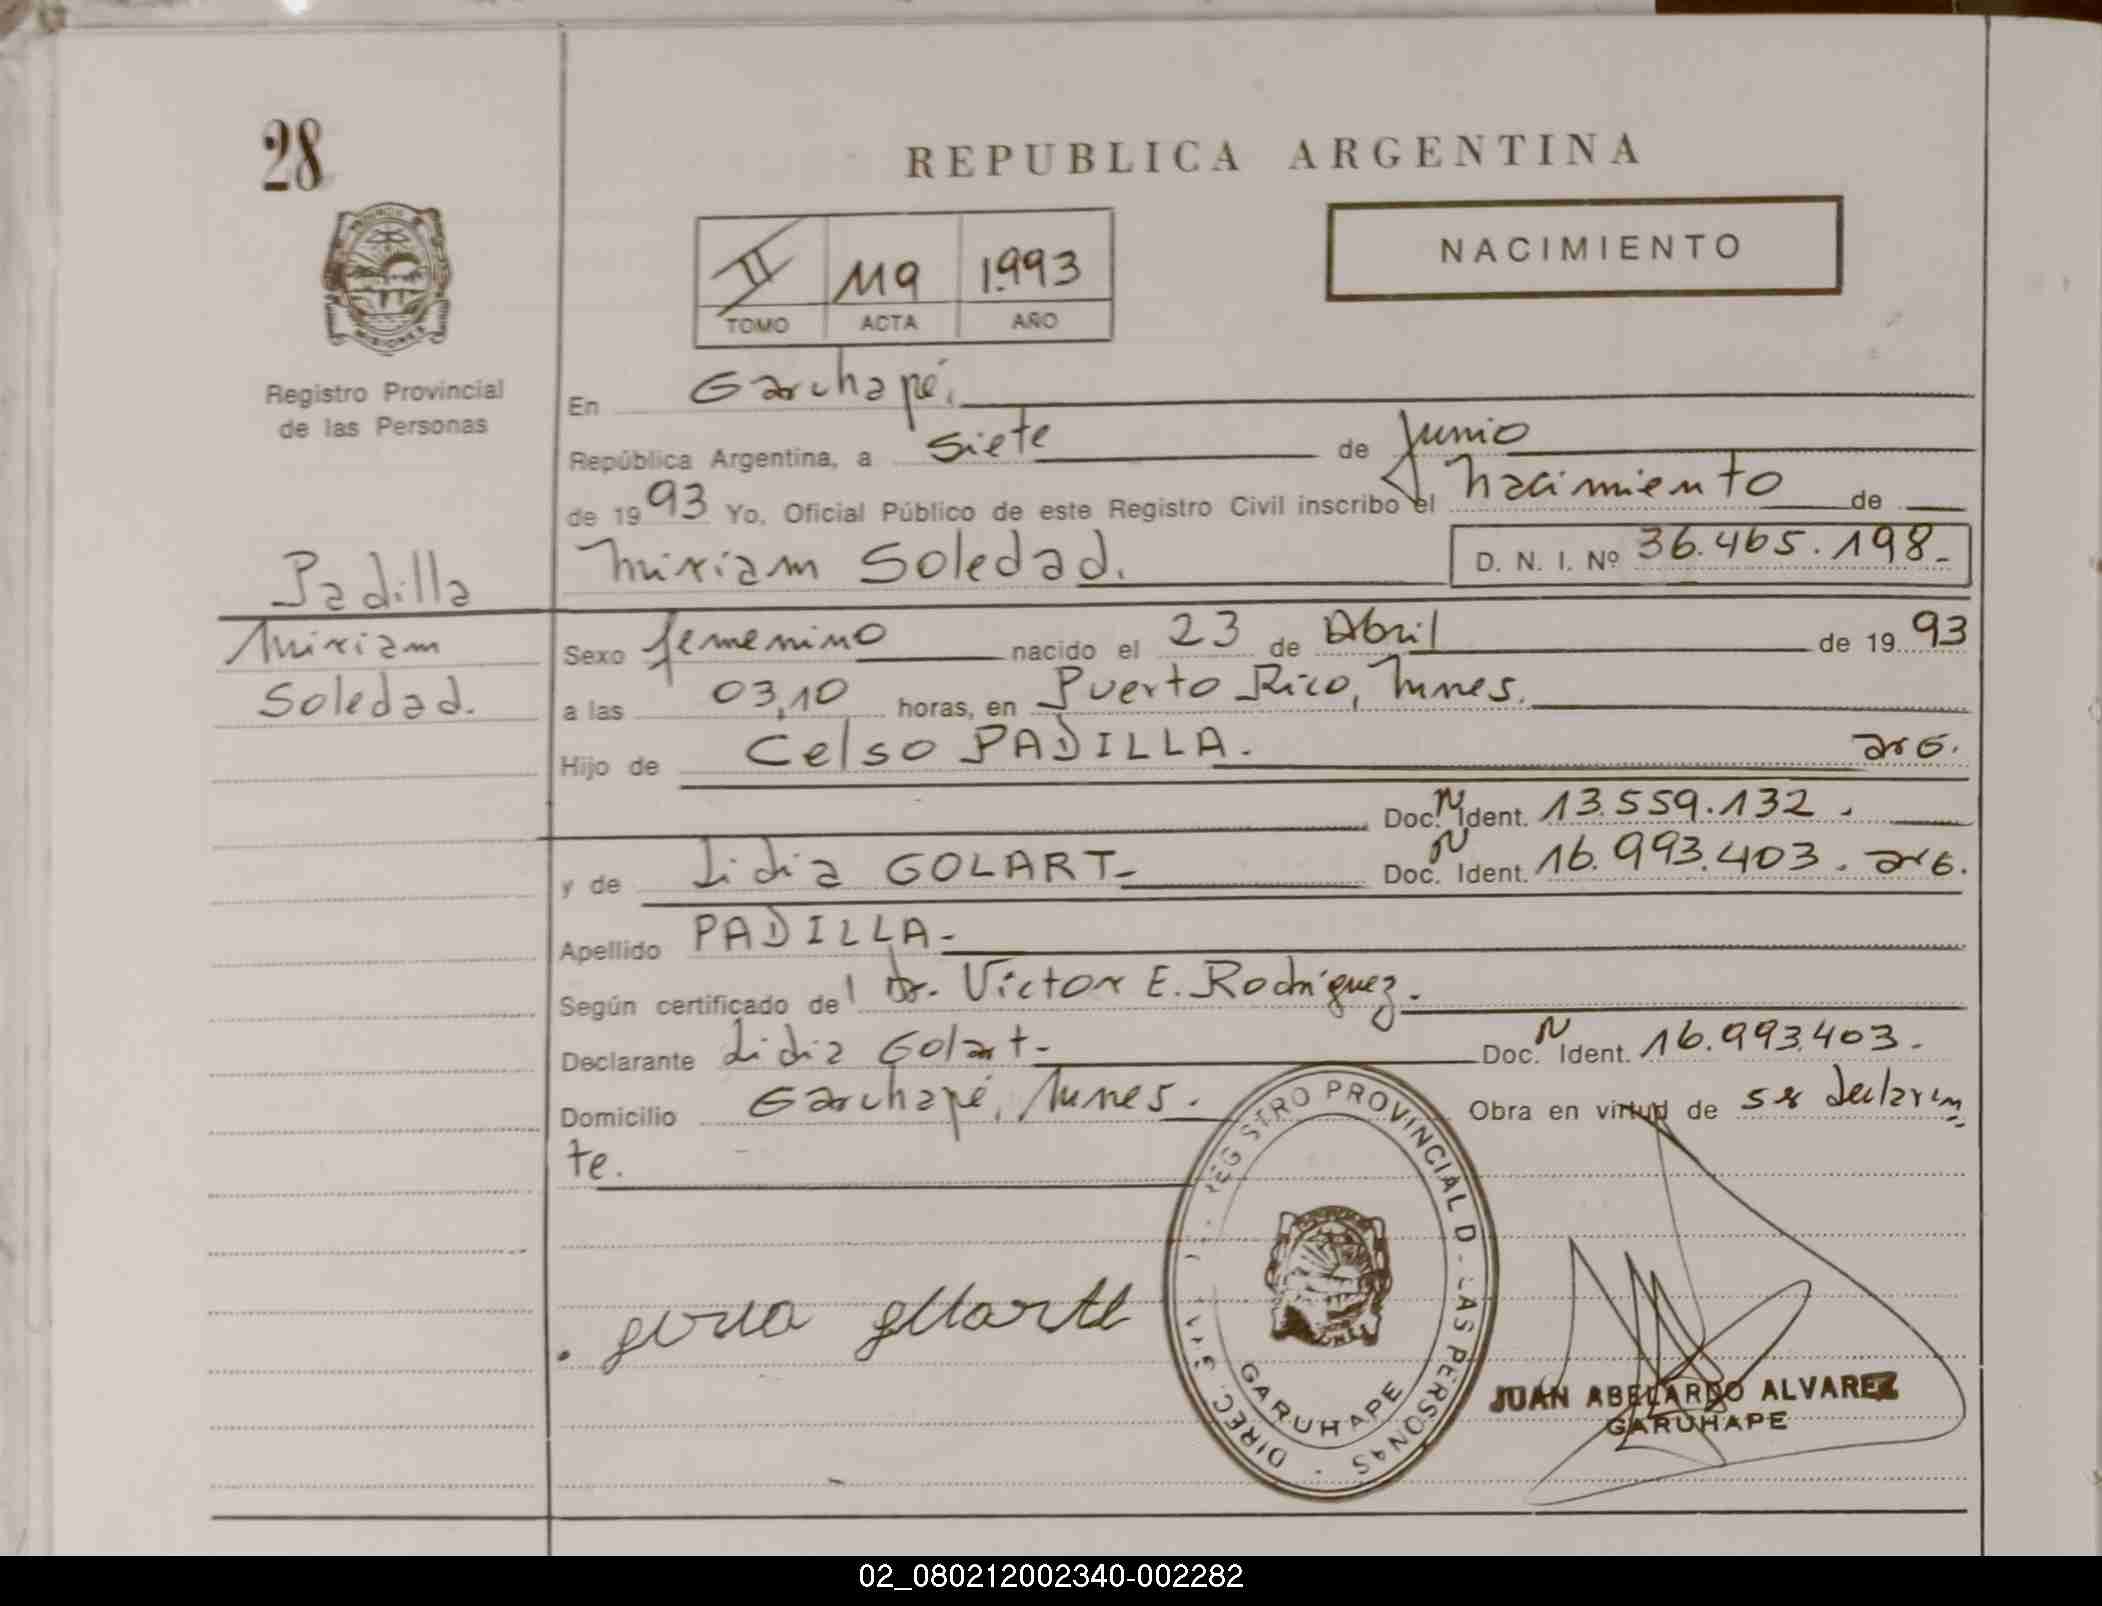 28
REPUBLICA ARGENTINA
NACIMIENTO
II 119 1.993
TOMO ACTA AÑO
Registro Provincial
de las Personas
En Garuhapé,
República Argentina, a siete de Junio
de 1993 Yo, Oficial Público de este Registro Civil inscribo el nacimiento de
Miriam Soledad. D. N. I. Nº 36.465.198-
Padilla
Miriam
Soledad.
Sexo femenino nacido el 23 de Abril de 1993
a las 03,10 horas, en Puerto Rico, Mnes.
Hijo de Celso PADILLA. arg.
Doc. N Ident. 13.559.132.
y de Lidia GOLART- Doc. N Ident. 16.993.403. arg.
Apellido PADILLA-
Según certificado del Dr. Victor E. Rodríguez.
Declarante Lidia Golart- Doc. N Ident. 16.993.403.
Domicilio Garuhapé, Mnes. Obra en virtud de ser declaran
te.
REGISTRO PROVINCIAL D. LAS PERSONAS
GARUHAPE
JUAN ABELARDO ALVAREZ
GARUHAPE
02_080212002340-002282